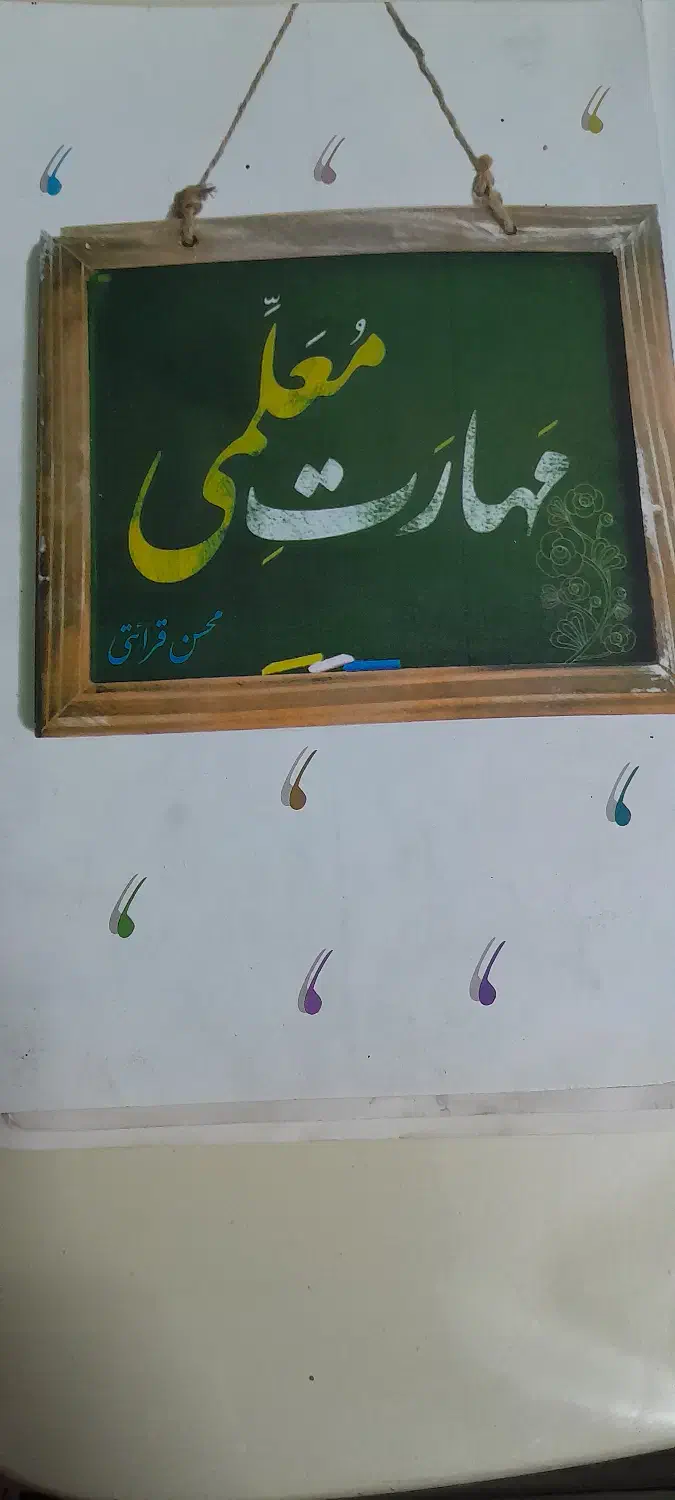 مَهارَتِ
مُعَلِّمی
محسن قرائتی